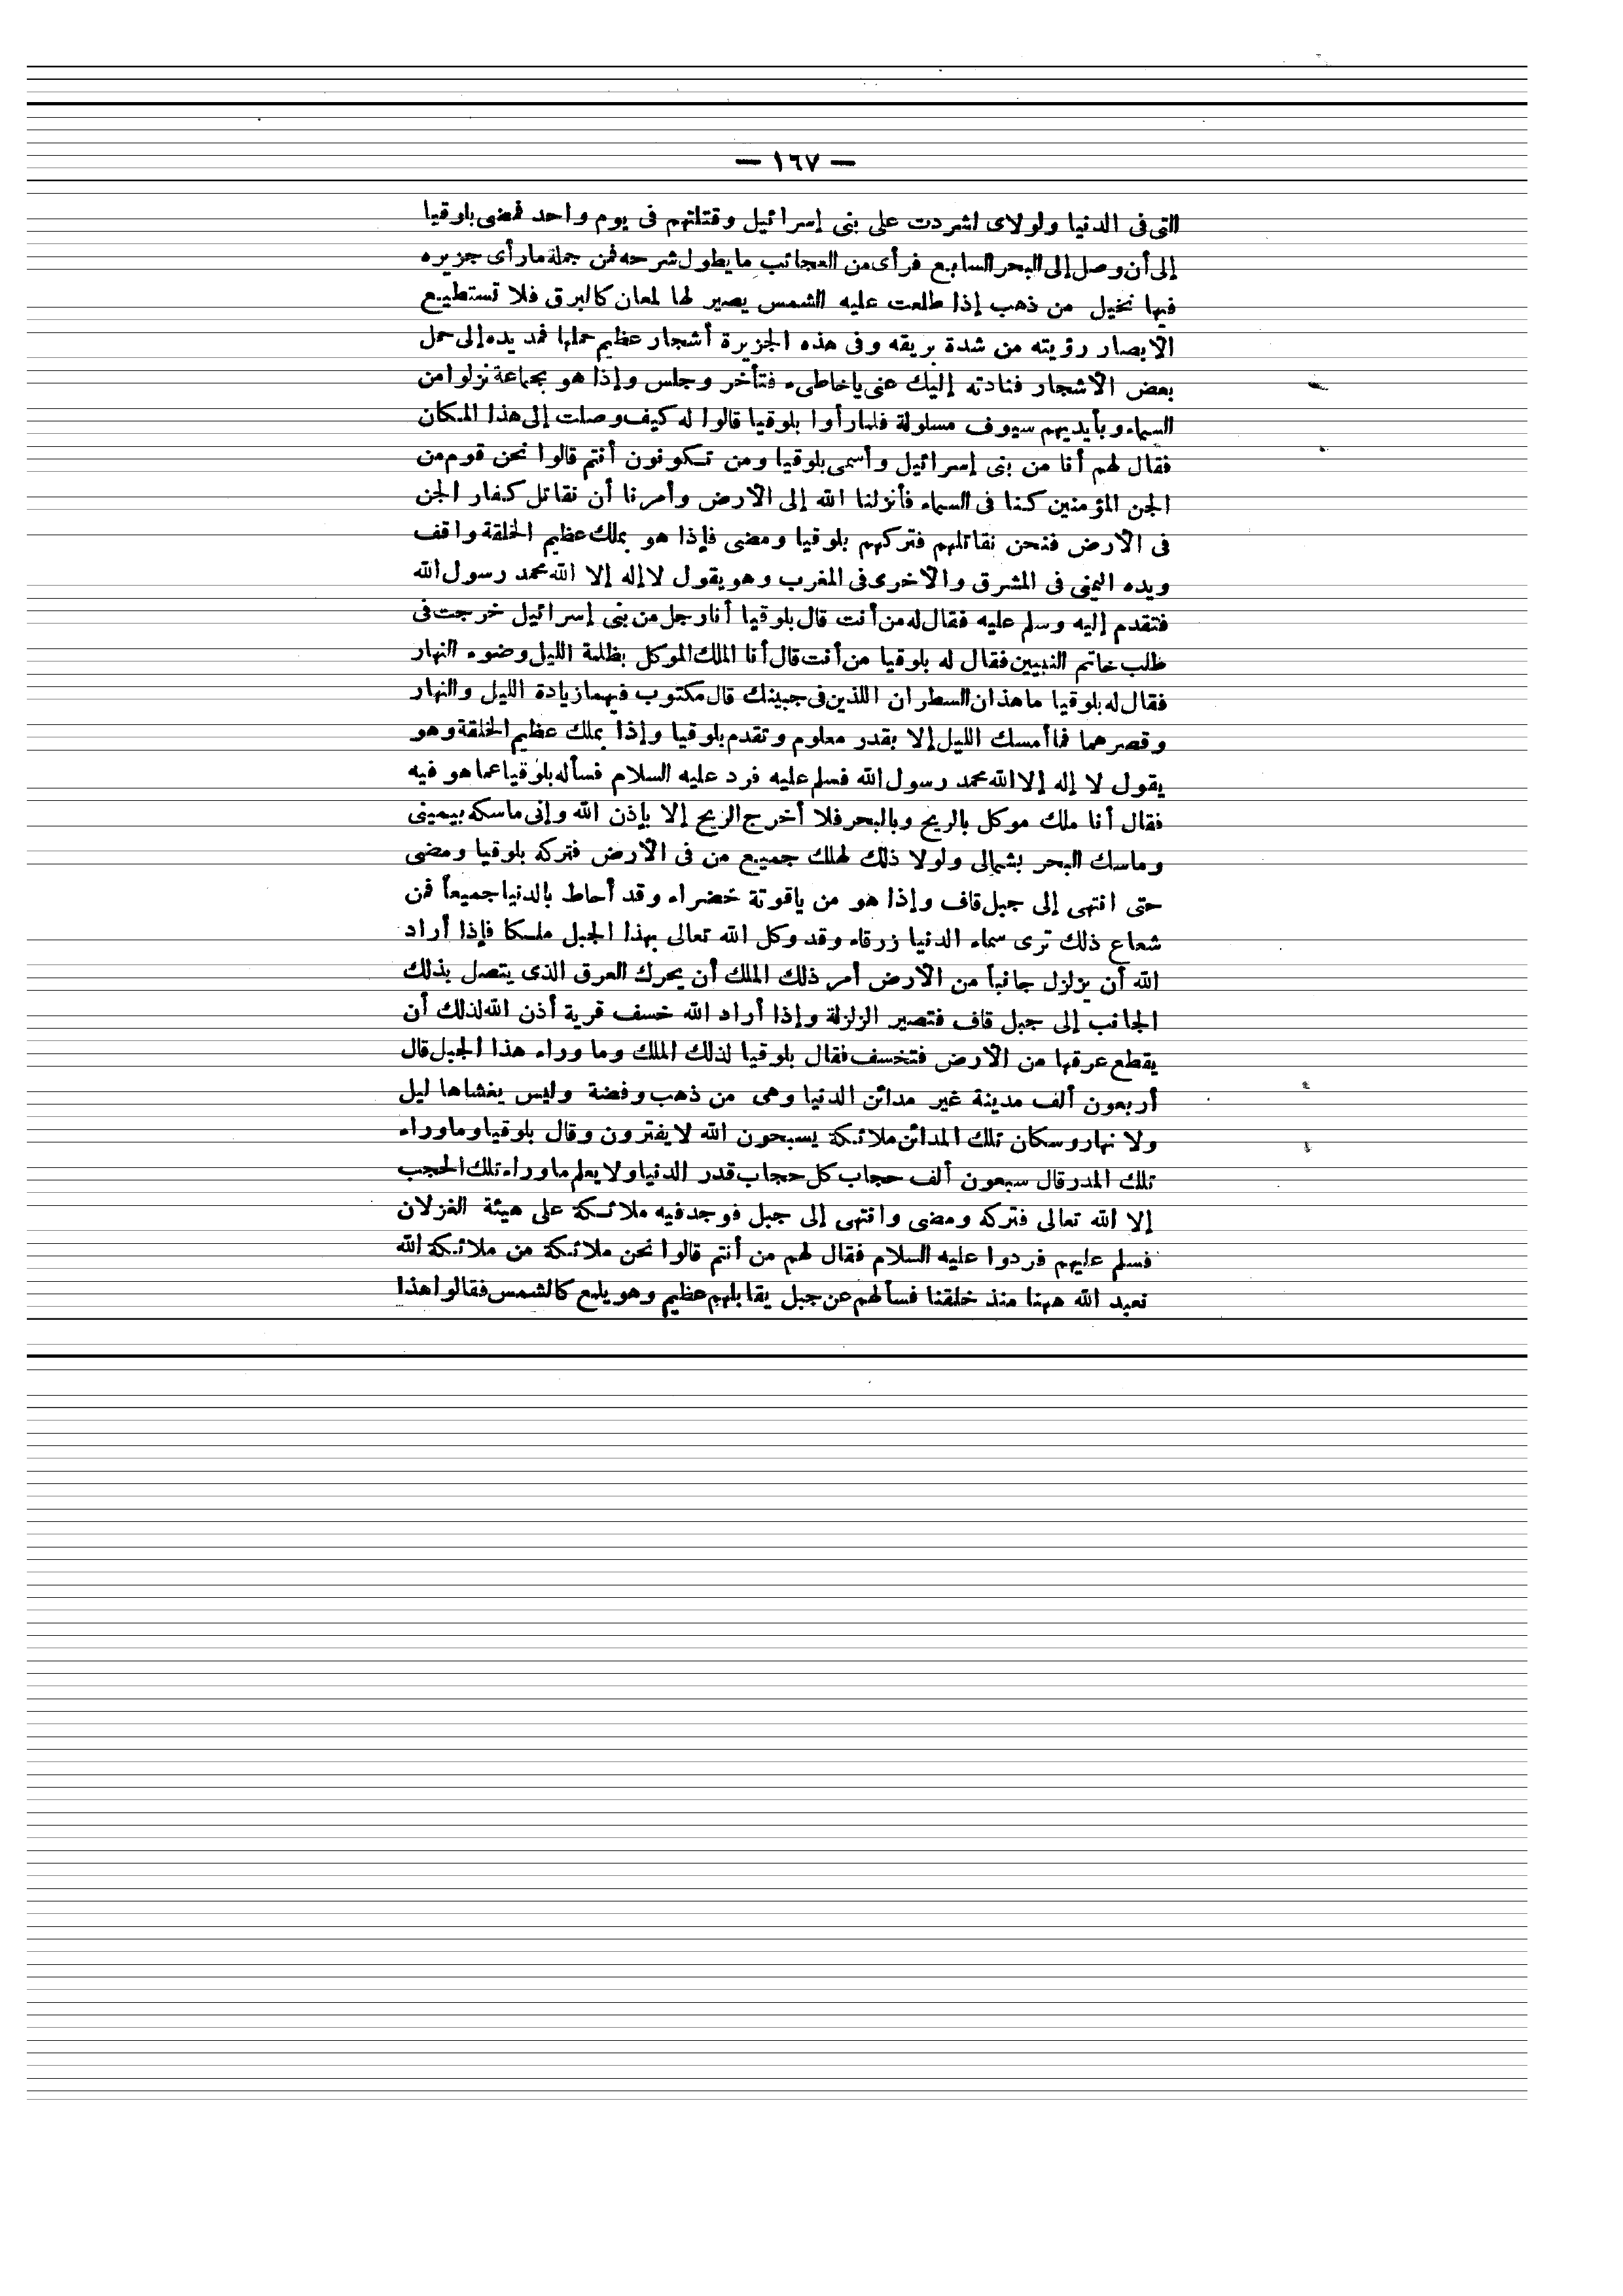 — ١٦٧ —
التى فى الدنيا ولولاى لشردت على بنى إسرائيل وقتلتهم فى يوم واحد فمضى بلوقيا
إلى أن وصل إلى البحر السابع فرأى من العجائب ما يطول شرحه فمن جملة ما رأى جزيره
فيها نخيل من ذهب إذا طلعت عليه الشمس يصير لها لمعان كالبرق فلا تستطيع
الابصار رؤيته من شدة بريقه وفى هذه الجزيرة أشجار عظيم حملها فمد يده إلى حمل
بعض الاشجار فنادته إليك عنى ياخاطىء فتأخر وجلس وإذا هو بجماعة نزلوا من
السماء وبأيديهم سيوف مسلولة فلما رأوا بلوقيا قالوا له كيف وصلت إلى هذا المكان
فقال لهم أنا من بنى إسرائيل وأسمى بلوقيا ومن تكونون أنتم قالوا نحن قوم من
الجن المؤمنين كنا فى السماء فأنزلنا الله إلى الأرض وأمرنا أن نقاتل كفار الجن
فى الأرض فنحن نقاتلهم فتركهم بلوقيا ومضى فإذا هو بملك عظيم الخلقة واقف
ويده اليمنى فى المشرق والأخرى فى المغرب وهو يقول لا إله إلا الله محمد رسول الله
فتقدم إليه وسلم عليه فقال له من أنت قال بلوقيا أنا رجل من بنى إسرائيل خرجت فى
طلب خاتم النبيين فقال له بلوقيا من أنت قال أنا الملك الموكل بظلمة الليل وضوء النهار
فقال له بلوقيا ما هذان السطران اللذين فى جبينك قال مكتوب فيهما زيادة الليل والنهار
وقصرهما فما أمسك الليل إلا بقدر معلوم وتقدم بلوقيا وإذا بملك عظيم الخلقة وهو
يقول لا إله إلا الله محمد رسول الله فسلم عليه فرد عليه السلام فسأله بلوقيا عما هو فيه
فقال أنا ملك موكل بالريح وبالبحر فلا أخرج الريح إلا بإذن الله وإنى ماسكه بيمينى
وماسك البحر بشمالى ولولا ذلك لهلك جميع من فى الأرض فتركه بلوقيا ومضى
حتى انتهى إلى جبل قاف وإذا هو من ياقوتة خضراء وقد أحاط بالدنيا جميعاً فمن
شعاع ذلك ترى سماء الدنيا زرقاء وقد وكل الله تعالى بهذا الجبل ملكا فإذا أراد
الله أن يزلزل جانباً من الأرض أمر ذلك الملك أن يحرك العرق الذى يتصل بذلك
الجانب إلى جبل قاف فتصير الزلزلة وإذا أراد الله خسف قرية أذن الله لذلك أن
يقطع عرقها من الأرض فتخسف فقال بلوقيا لذلك الملك وما وراء هذا الجبل قال
أربعون ألف مدينة غير مدائن الدنيا وهى من ذهب وفضة وليس يغشاها ليل
ولا نهار وسكان تلك المدائن ملائكة يسبحون الله لا يفترون وقال بلوقيا وما وراء
تلك المدر قال سبعون ألف حجاب كل حجاب قدر الدنيا ولا يعلم ما وراء تلك الحجب
إلا الله تعالى فتركه ومضى وانتهى إلى جبل فوجد فيه ملائكة على هيئة الغزلان
فسلم عليهم فردوا عليه السلام فقال لهم من أنتم قالوا نحن ملائكة من ملائكة الله
نعبد الله ههنا منذ خلقنا فسألهم عن جبل يقابلهم عظيم وهو يلمع كالشمس فقالوا هذا